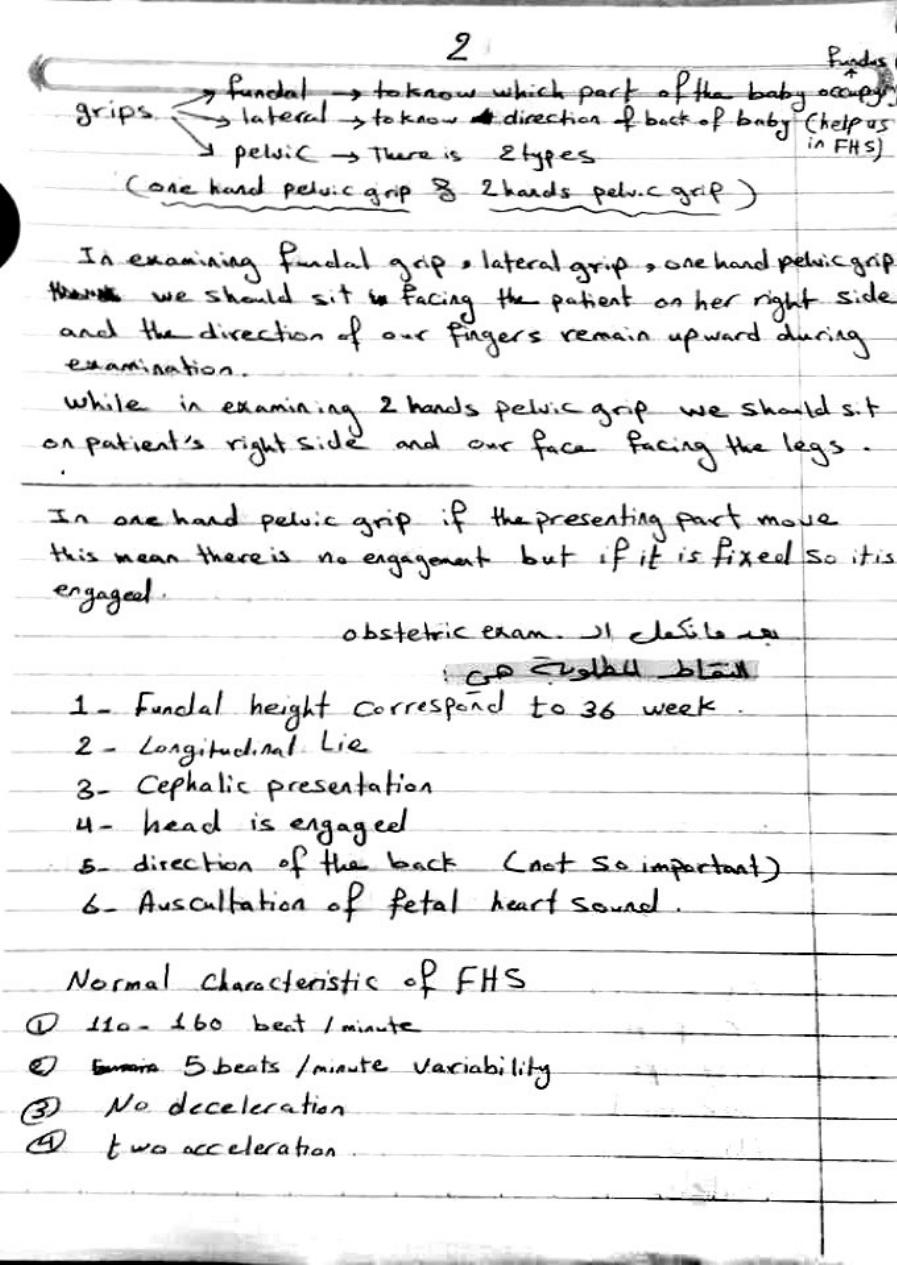 2
grips → fundal → to know which part of the baby occupy fundus
→ lateral → to know direction of back of baby (help us in FHS)
→ pelvic → There is 2 types
(one hand pelvic grip & 2 hands pelvic grip)
In examining fundal grip, lateral grip, one hand pelvic grip
we should sit facing the patient on her right side
and the direction of our fingers remain upward during
examination.
while in examining 2 hands pelvic grip we should sit
on patient's right side and our face facing the legs.
In one hand pelvic grip if the presenting part move
this mean there is no engagement but if it is fixed so it is
engaged.
بعد ما نكمل ال obstetric exam.
النقاط المطلوبة هي :
1- Fundal height correspond to 36 week.
2- Longitudinal Lie
3- Cephalic presentation
4- head is engaged
5- direction of the back (not so important)
6- Auscultation of fetal heart sound.
Normal characteristic of FHS
① 110 - 160 beat / minute
② 5 beats / minute variability
③ No deceleration
④ two acceleration.